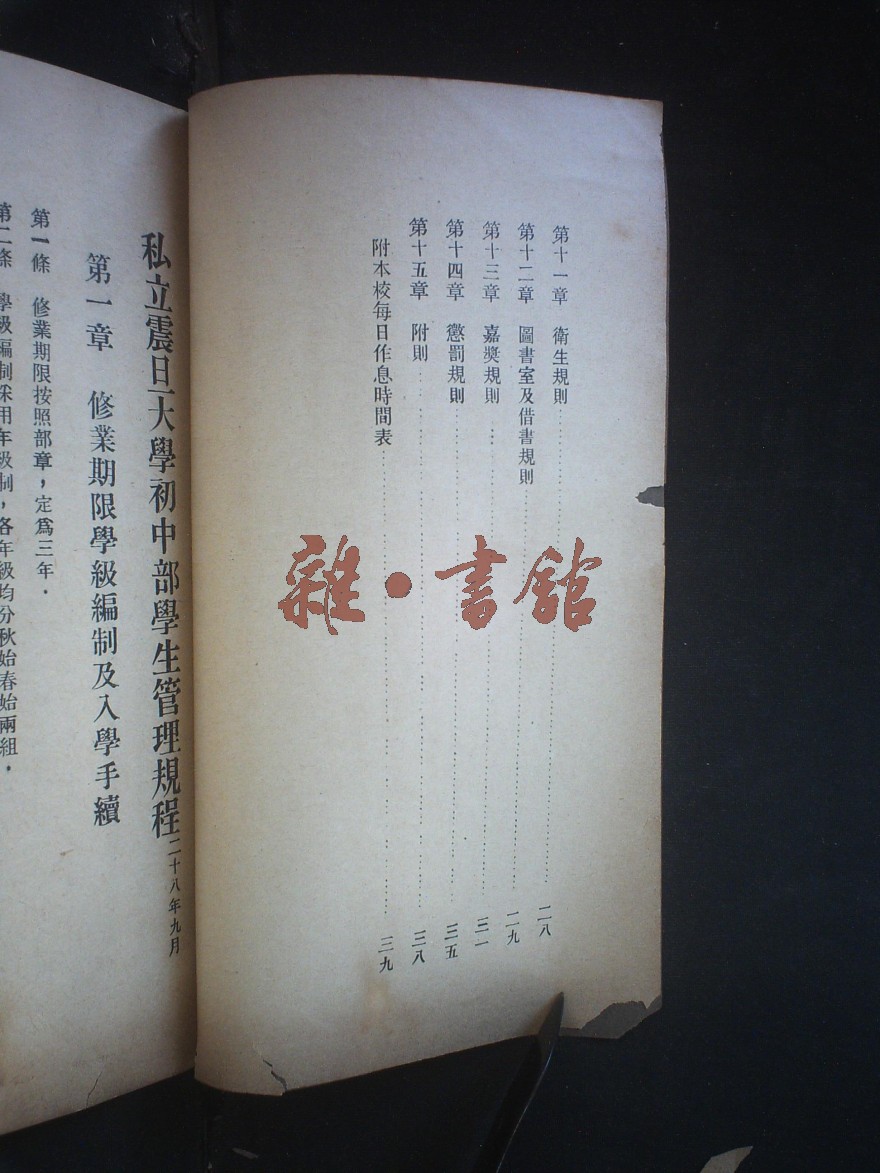 第十一章　衛生規則……二八
第十二章　圖書室及借書規則……二九
第十三章　嘉奬規則……三一
第十四章　懲罰規則……三五
第十五章　附則……三八
附本校每日作息時間表……三九
私立震旦大學初中部學生管理規程二十八年九月
第一章　修業期限學級編制及入學手續
第一條　修業期限按照部章，定爲三年．
第二條　學級編制採用年級制，各年級均分秋始春始兩組，
雜·書館